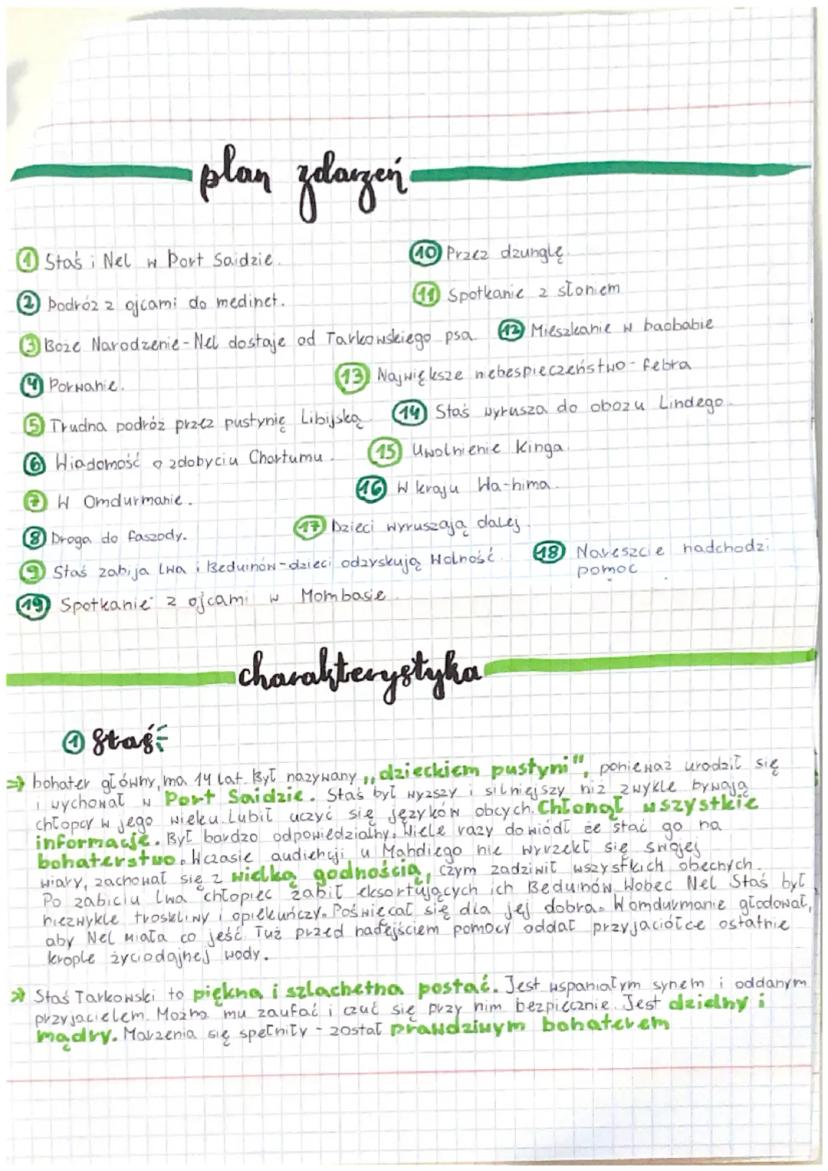 plan zdarzeń
① Staś i Nel w Port Saidzie.
② Podróż z ojcami do medinet.
③ Boże Narodzenie - Nel dostaje od Tarkowskiego psa.
④ Porwanie.
⑤ Trudna podróż przez pustynię Libijską
⑥ Wiadomość o zdobyciu Chartumu.
⑦ W Omdurmanie.
⑧ Droga do faszody.
⑨ Staś zabija lwa i Beduinów - dzieci odzyskują wolność.
⑩ Przez dżunglę
⑪ Spotkanie z słoniem
⑫ Mieszkanie w baobabie
⑬ Największe niebespieczeństwo - febra
⑭ Staś wyrusza do obozu Lindego.
⑮ Uwolnienie Kinga.
⑯ W kraju Wa-hima.
⑰ Dzieci wyruszają dalej.
⑱ Nareszcie nadchodzi
pomoc
⑲ Spotkanie z ojcami w Mombasie.
charakterystyka
① Staś
⇒ bohater główny, ma 14 lat. Był nazywany „dzieckiem pustyni", ponieważ urodził się
i wychował w Port Saidzie. Staś był wyższy i silniejszy niż zwykle bywają
chłopcy w jego wieku. Lubił uczyć się języków obcych. Chłonął wszystkie
informacje. Był bardzo odpowiedzialny. Wiele razy dowiódł że stać go na
bohaterstwo. Wczasie audiencji u Mahdiego nie wyrzekł się swojej
wiary, zachował się z wielką godnością, czym zadziwił wszystkich obecnych.
Po zabiciu lwa chłopiec zabił eksortujących ich Beduinów. Wobec Nel Staś był
niezwykle troskliwy i opiekuńczy. Poświęcał się dla jej dobra. Womdurmanie głodował,
aby Nel miała co jeść. Tuż przed nadejściem pomocy oddał przyjaciółce ostatnie
krople życiodajnej wody.
⇒ Staś Tarkowski to piękna i szlachetna postać. Jest wspaniałym synem i oddanym
przyjacielem. Można mu zaufać i czuć się przy nim bezpiecznie. Jest dzielny i
mądry. Marzenia się spełniły - został prawdziwym bohaterem